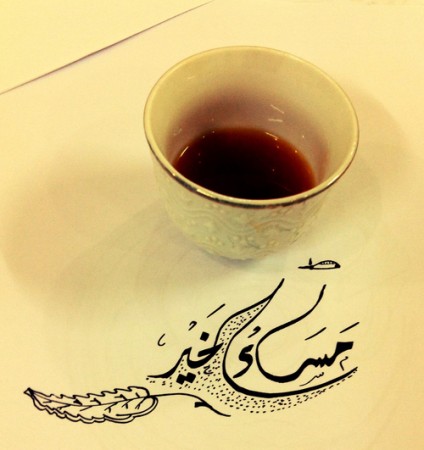 مَسَاء الخَير